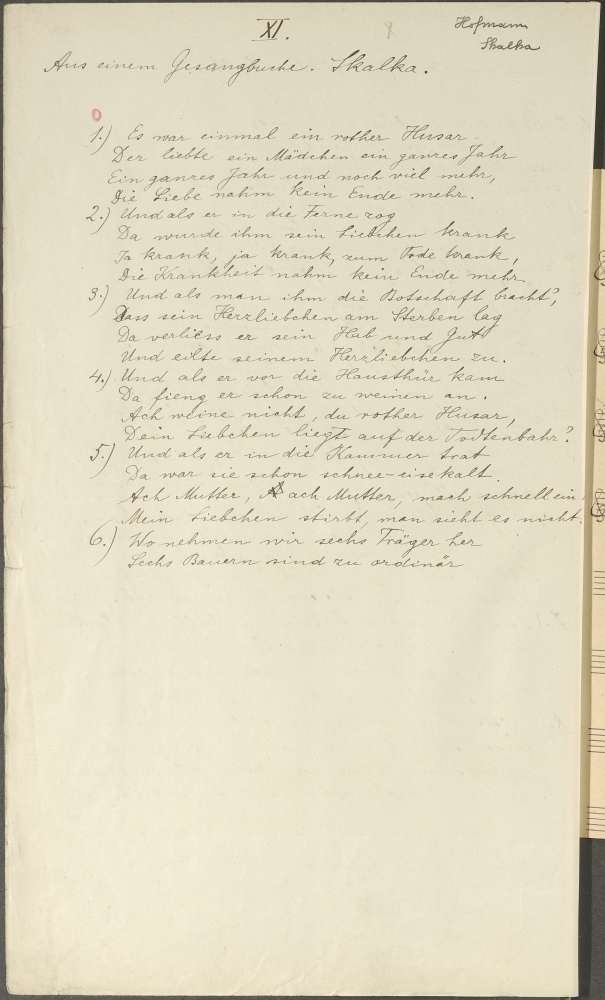 XI.
Hofmann
Skalka
Aus einem Gesangbuche. Skalka.
1.) Es war einmal ein rother Husar
Der liebte ein Mädchen ein ganzes Jahr
Ein ganzes Jahr und noch viel mehr,
Die Liebe nahm kein Ende mehr.
2.) Und als er in die Ferne zog
Da wurde ihm sein Liebchen krank
Ja krank, ja krank, zum Tode krank,
Die Krankheit nahm kein Ende mehr
3.) Und als man ihm die Botschaft bracht',
Dass sein Herzliebchen am Sterben lag
Da verliess er sein Hab und Gut
Und eilte seinem Herzliebchen zu.
4.) Und als er vor die Hausthür kam
Da fieng er schon zu weinen an.
Ach weine nicht, du rother Husar,
Dein Liebchen liegt auf der Todtenbahr?
5.) Und als er in die Kammer trat
Da war sie schon schnee-eisekalt.
Ach Mutter, ach Mutter, mach schnell ein
Mein Liebchen stirbt, man sieht es nicht.
6.) Wo nehmen wir sechs Träger her
Sechs Bauern sind zu ordinär